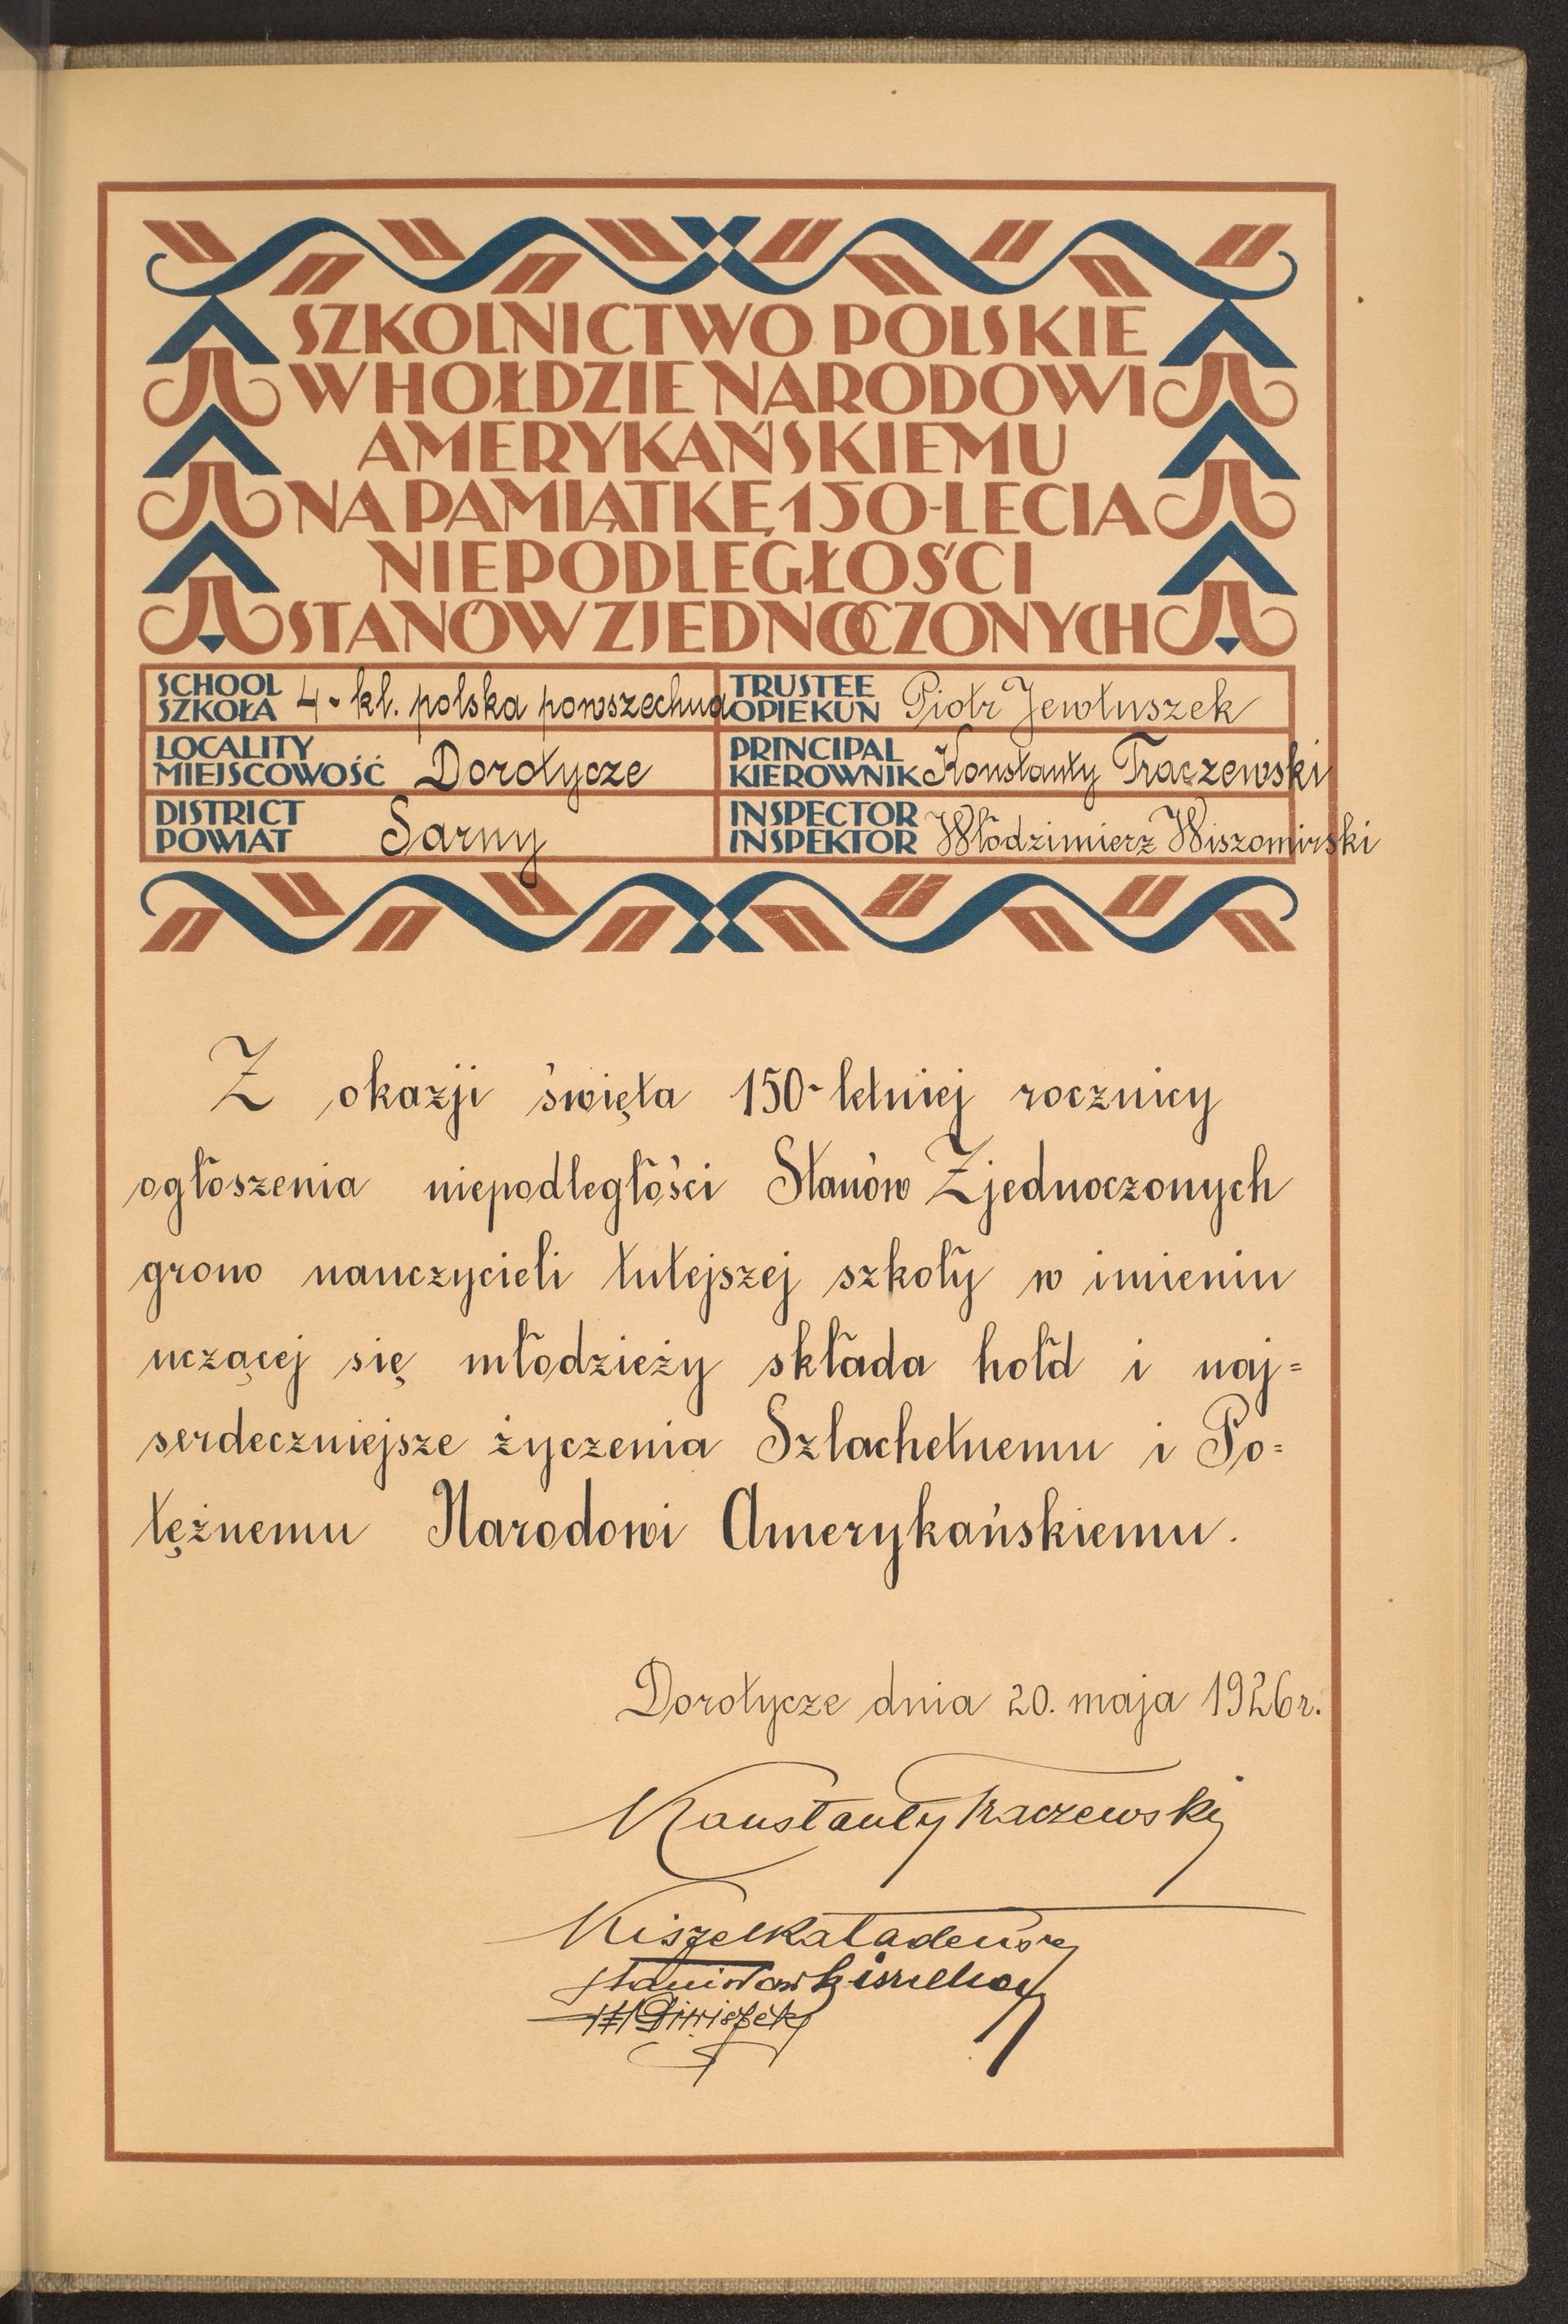 SZKOLNICTWO POLSKIE
W HOŁDZIE NARODOWI
AMERYKAŃSKIEMU
NA PAMIĄTKĘ 150-LECIA
NIEPODLEGŁOŚCI
STANÓW ZJEDNOCZONYCH
SCHOOL
SZKOŁA 4-kl. polska powszechna
TRUSTEE
OPIEKUN Piotr Jewtuszek
LOCALITY
MIEJSCOWOŚĆ Dorotycze
PRINCIPAL
KIEROWNIK Konstanty Traczewski
DISTRICT
POWIAT Sarny
INSPECTOR
INSPEKTOR Włodzimierz Wiszomirski
Z okazji święta 150-letniej rocznicy
ogłoszenia niepodległości Stanów Zjednoczonych
grono nauczycieli tutejszej szkoły w imieniu
uczącej się młodzieży składa hołd i naj=
serdeczniejsze życzenia Szlachetnemu i Po=
tężnemu Narodowi Amerykańskiemu.
Dorotycze dnia 20. maja 1926 r.
Konstanty Traczewski
Kiszelka Tadeusz
Stanisław